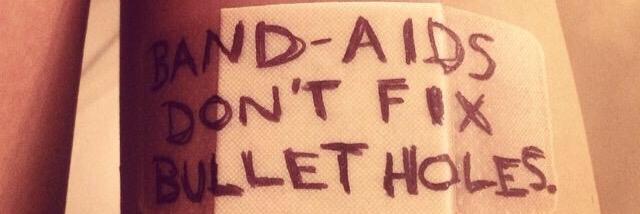 BAND-AIDS
DON'T FIX
BULLET HOLES.